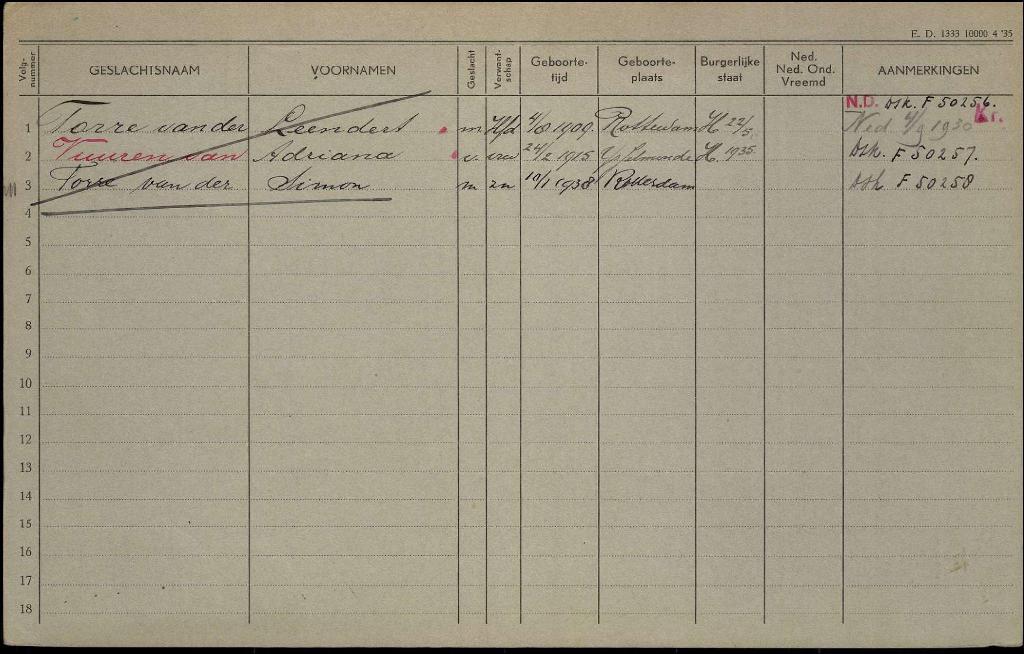 E. D. 1333 10000 4 '35
Volg-nummer GESLACHTSNAAM VOORNAMEN Geslacht Verwant-schap Geboorte-tijd Geboorte-plaats Burgerlijke staat Ned. Ned. Ond. Vreemd AANMERKINGEN
N.D. dsk. F 50256.
1 Torre van der Leendert m Hfd 4/8 1909 Rotterdam H 22/5. Ned. 4/9 1930 Kr.
2 Vuuren van Adriana v. vrw 24/2 1915 IJsselmonde H. 1935. Dsk. F 50257.
3 Torre van der Simon m zn 10/1 1938 Rotterdam dsk F 50258
4
5
6
7
8
9
10
11
12
13
14
15
16
17
18